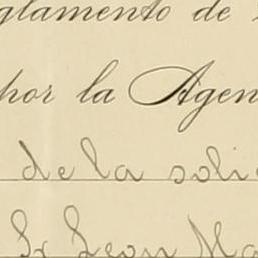 glamento de
por la Agen
de la soli
Leon Ma